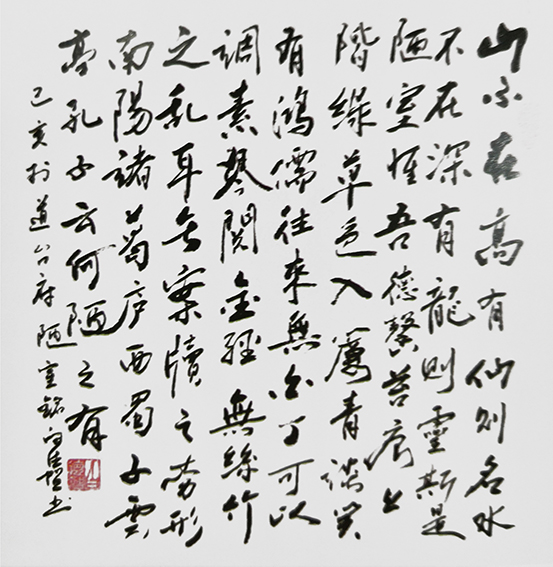 山不在高有仙则名水
不在深有龍则靈斯是
陋室惟吾德馨苔痕上
階綠草色入簾青談笑
有鴻儒往來無白丁可以
調素琴閱金經無絲竹
之乱耳无案牘之劳形
南陽諸葛庐西蜀子雲
亭孔子云何陋之有
己亥於道台府陋室銘书